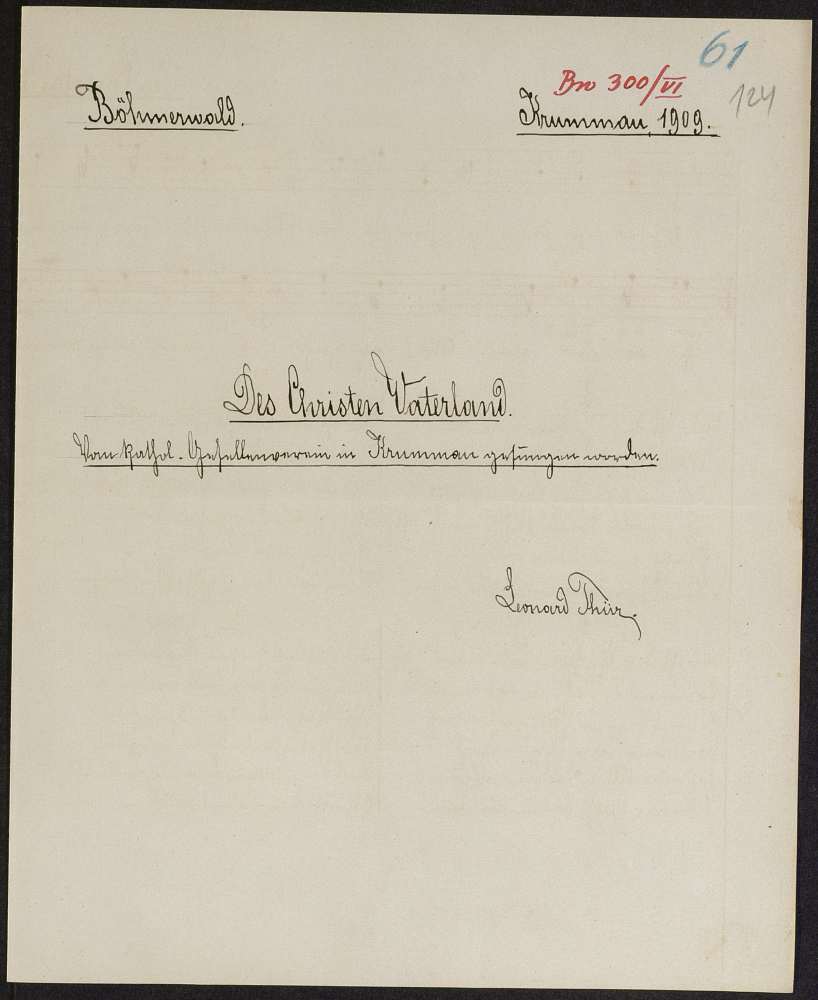 61
Bw 300/VI
124
Böhmerwald.
Krummau, 1909.
Des Christen Vaterland.
Vom kathol. Gesellenverein in Krummau gesungen worden.
Leonard Thür.